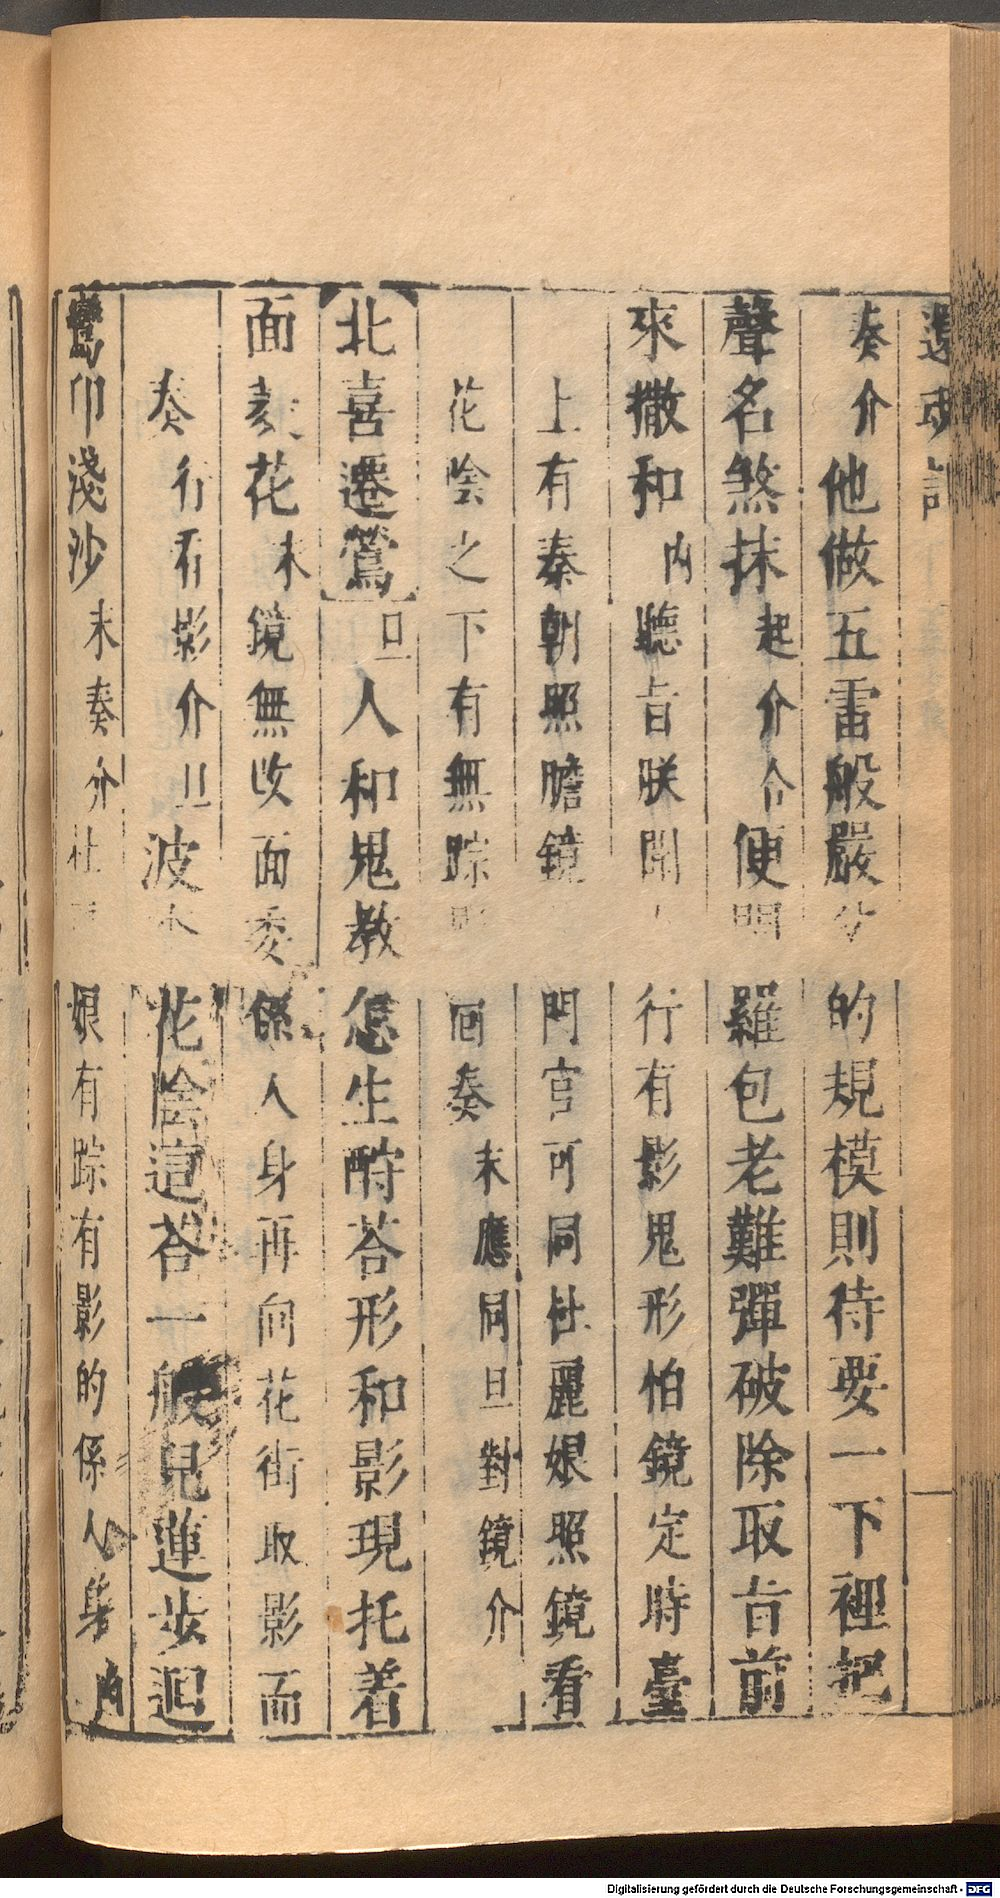 還魂記
奏介他做五雷般嚴 的規模則待要一下裡把
聲名煞抹起介合便 羅包老難彈破除取旨前
來撒和内聽旨朕聞 行有影鬼形怕鏡定時臺
上有秦朝照膽鏡 門官可同杜麗娘照鏡看
花陰之下有無踪影 囘奏末應同旦對鏡介
北喜遷鶯旦人和鬼教怎生酧荅形和影現托着
面 花末鏡無收面委係人身再向花街取影而
奏行看影介旦波 花陰這荅一般兒蓮步廻
鸞印淺沙末奏介杜 娘有踪有影的係人身内
Digitalisierung gefördert durch die Deutsche Forschungsgemeinschaft - DFG